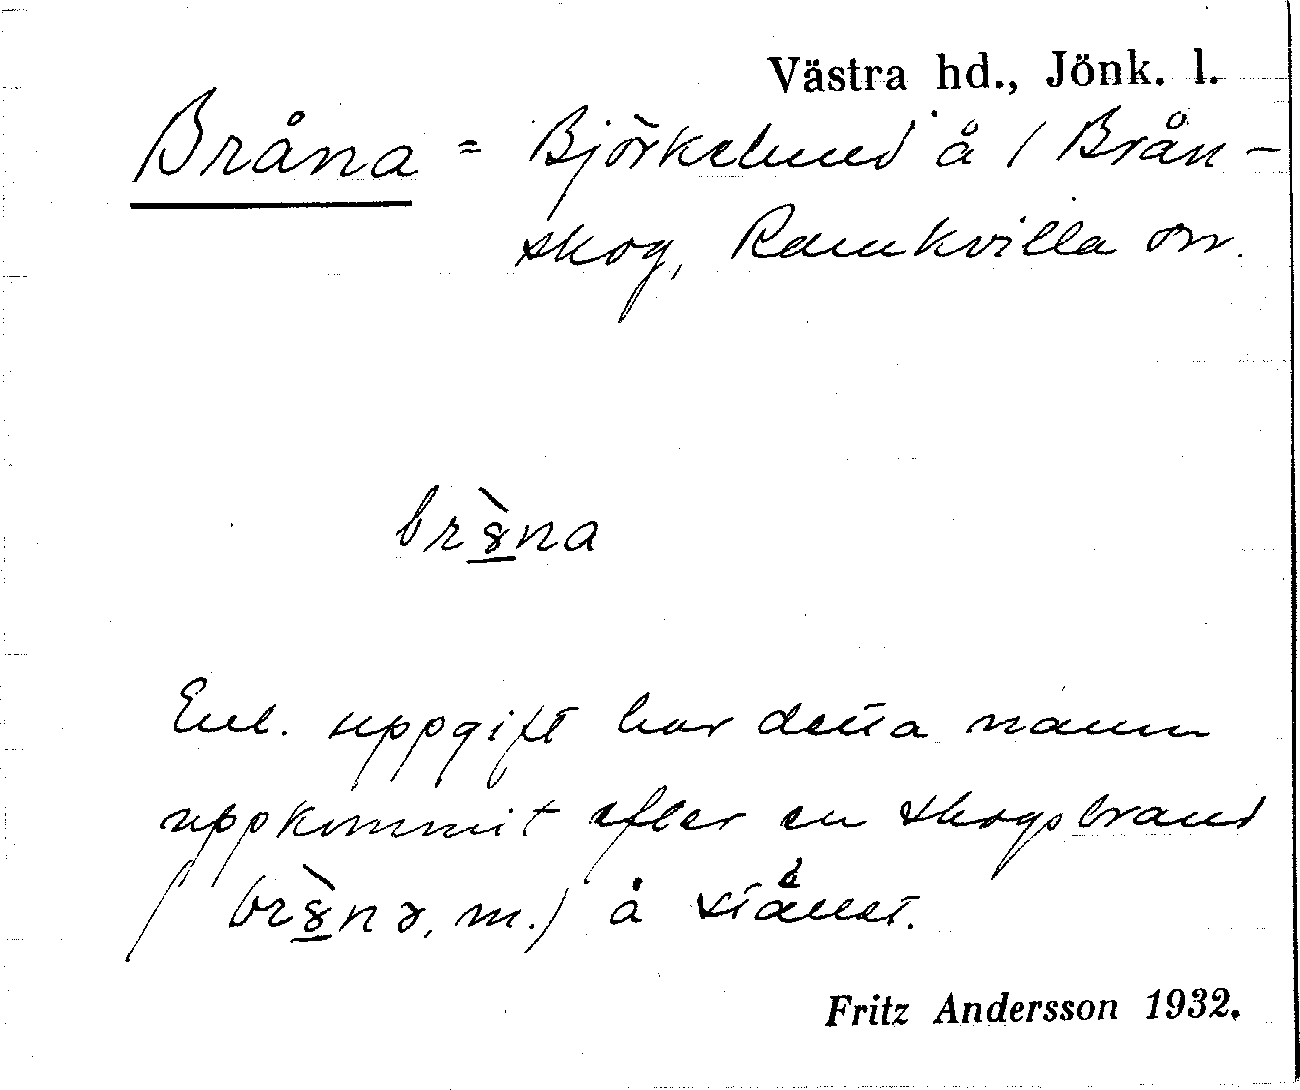 Västra hd., Jönk. l.
Bråna = Björkelund å / Brån-
skog, Ramkvilla sn.
brɤ̠̀na
Enl. uppgift har detta namn
uppkommit efter en skogsbrand
( brɤ̠̀nɤ, m.) å stället.
Fritz Andersson 1932.